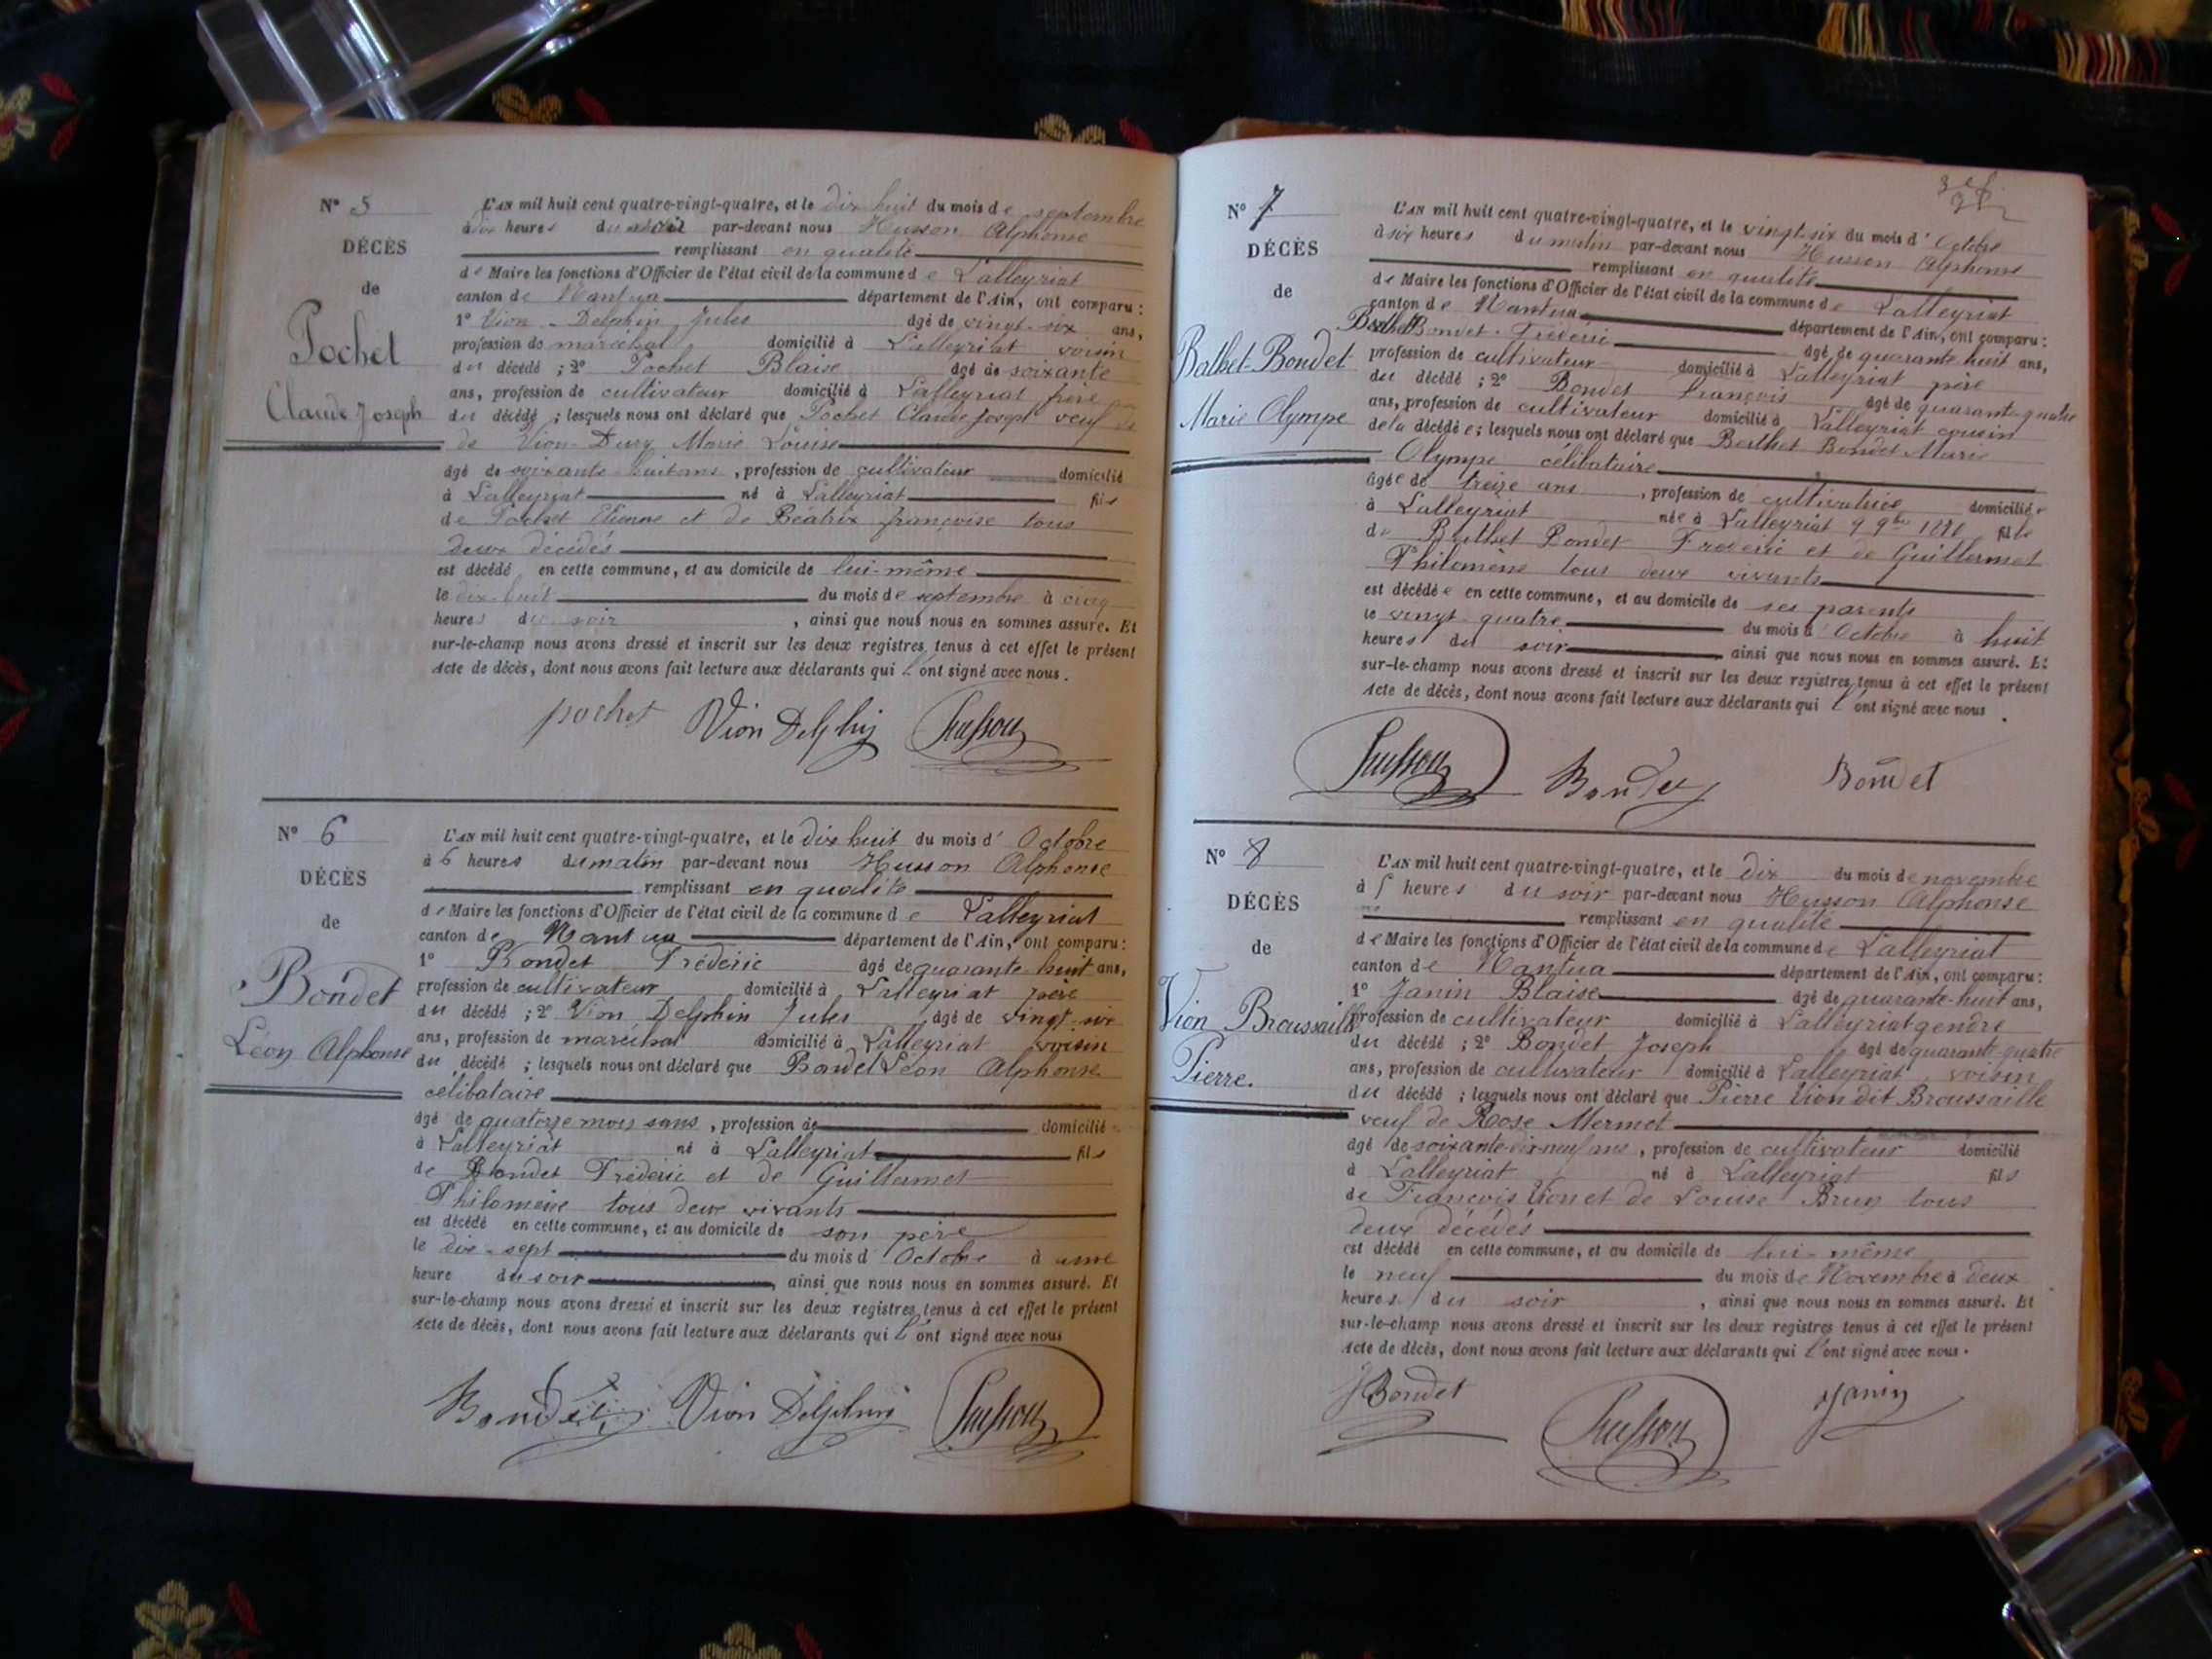 N° 5
DÉCÈS
de
Pochet
Claude Joseph
L'AN mil huit cent quatre-vingt-quatre, et le dix huit du mois de septembre
à six heures du soir par-devant nous Husson Alphonse
remplissant en qualité
de Maire les fonctions d'Officier de l'état civil de la commune de Lalleyriat
canton de Nantua département de l'Ain, ont comparu :
1° Vion-Delphin Jules âgé de vingt-six ans,
profession de maréchal domicilié à Lalleyriat voisin
du décédé ; 2° Pochet Blaise âgé de soixante
ans, profession de cultivateur domicilié à Lalleyriat frère
du décédé ; lesquels nous ont déclaré que Pochet Claude Joseph veuf
de Vion-Dury Marie Louise
âgé de soixante huit ans, profession de cultivateur domicilié
à Lalleyriat né à Lalleyriat fils
de Pochet Etienne et de Béatrix françoise tous
deux décédés
est décédé en cette commune, et au domicile de lui-même
le dix-huit du mois de septembre à cinq
heures du soir, ainsi que nous nous en sommes assuré. Et
sur-le-champ nous avons dressé et inscrit sur les deux registres tenus à cet effet le présent
Acte de décès, dont nous avons fait lecture aux déclarants qui l'ont signé avec nous.
pochet Vion Delphin Husson
N° 6
DÉCÈS
de
Bondet
Léon Alphonse
L'AN mil huit cent quatre-vingt-quatre, et le dix huit du mois d'Octobre
à 6 heures du matin par-devant nous Husson Alphonse
remplissant en qualité
de Maire les fonctions d'Officier de l'état civil de la commune de Lalleyriat
canton de Nantua département de l'Ain, ont comparu :
1° Bondet Fréderic âgé de quarante huit ans,
profession de cultivateur domicilié à Lalleyriat père
du décédé ; 2° Vion Delphin Jules âgé de vingt-six
ans, profession de maréchal domicilié à Lalleyriat voisin
du décédé ; lesquels nous ont déclaré que Bondet Léon Alphonse
célibataire
âgé de quatorze mois sans, profession de domicilié
à Lalleyriat né à Lalleyriat fils
de Bondet Fréderic et de Guillermet
Philomène tous deux vivants
est décédé en cette commune, et au domicile de son père
le dix-sept du mois d'Octobre à une
heure du soir, ainsi que nous nous en sommes assuré. Et
sur-le-champ nous avons dressé et inscrit sur les deux registres tenus à cet effet le présent
Acte de décès, dont nous avons fait lecture aux déclarants qui l'ont signé avec nous
Bondet Vion Delphin Husson
N° 7
DÉCÈS
de
Balhet-Bondet
Marie Olympe
L'AN mil huit cent quatre-vingt-quatre, et le vingt-six du mois d'Octobre
à six heures du matin par-devant nous Husson Alphonse
remplissant en qualité
de Maire les fonctions d'Officier de l'état civil de la commune de Lalleyriat
canton de Nantua département de l'Ain, ont comparu :
Bondet-Fréderic âgé de quarante huit ans,
profession de cultivateur domicilié à Lalleyriat père
du décédé ; 2° Bondet François âgé de quarante-quatre
ans, profession de cultivateur domicilié à Lalleyriat cousin
de la décédée ; lesquels nous ont déclaré que Berthet Bondet Marie
Olympe célibataire
âgée de treize ans, profession de cultivatrice domiciliée
à Lalleyriat née à Lalleyriat fille
de Bondet Fréderic et de Guillermet
Philomène tous deux vivants
est décédée en cette commune, et au domicile de ses parents
le vingt-quatre du mois d'Octobre à huit
heures du soir ainsi que nous nous en sommes assuré. Et
sur-le-champ nous avons dressé et inscrit sur les deux registres tenus à cet effet le présent
Acte de décès, dont nous avons fait lecture aux déclarants qui l'ont signé avec nous.
Husson Bondet Bondet
N° 8
DÉCÈS
de
Vion Broussaille
Pierre.
L'AN mil huit cent quatre-vingt-quatre, et le dix du mois de novembre
à 5 heures du soir par-devant nous Husson Alphonse
remplissant en qualité
de Maire les fonctions d'Officier de l'état civil de la commune de Lalleyriat
canton de Nantua département de l'Ain, ont comparu :
1° Janin Blaise âgé de quarante-huit ans,
profession de cultivateur domicilié à Lalleyriat gendre
du décédé ; 2° Bondet Joseph âgé de quarante-quatre
ans, profession de cultivateur domicilié à Lalleyriat voisin
du décédé ; lesquels nous ont déclaré que Pierre Vion dit Broussaille
veuf de Rose Mermet
âgé de soixante-dix-neuf ans, profession de cultivateur domicilié
à Lalleyriat né à Lalleyriat fils
de François Vion et de Louise Brun tous
deux décédés
est décédé en cette commune, et au domicile de lui-même
le neuf du mois de Novembre à deux
heures du soir, ainsi que nous nous en sommes assuré. Et
sur-le-champ nous avons dressé et inscrit sur les deux registres tenus à cet effet le présent
Acte de décès, dont nous avons fait lecture aux déclarants qui l'ont signé avec nous.
J Bondet Husson Janin